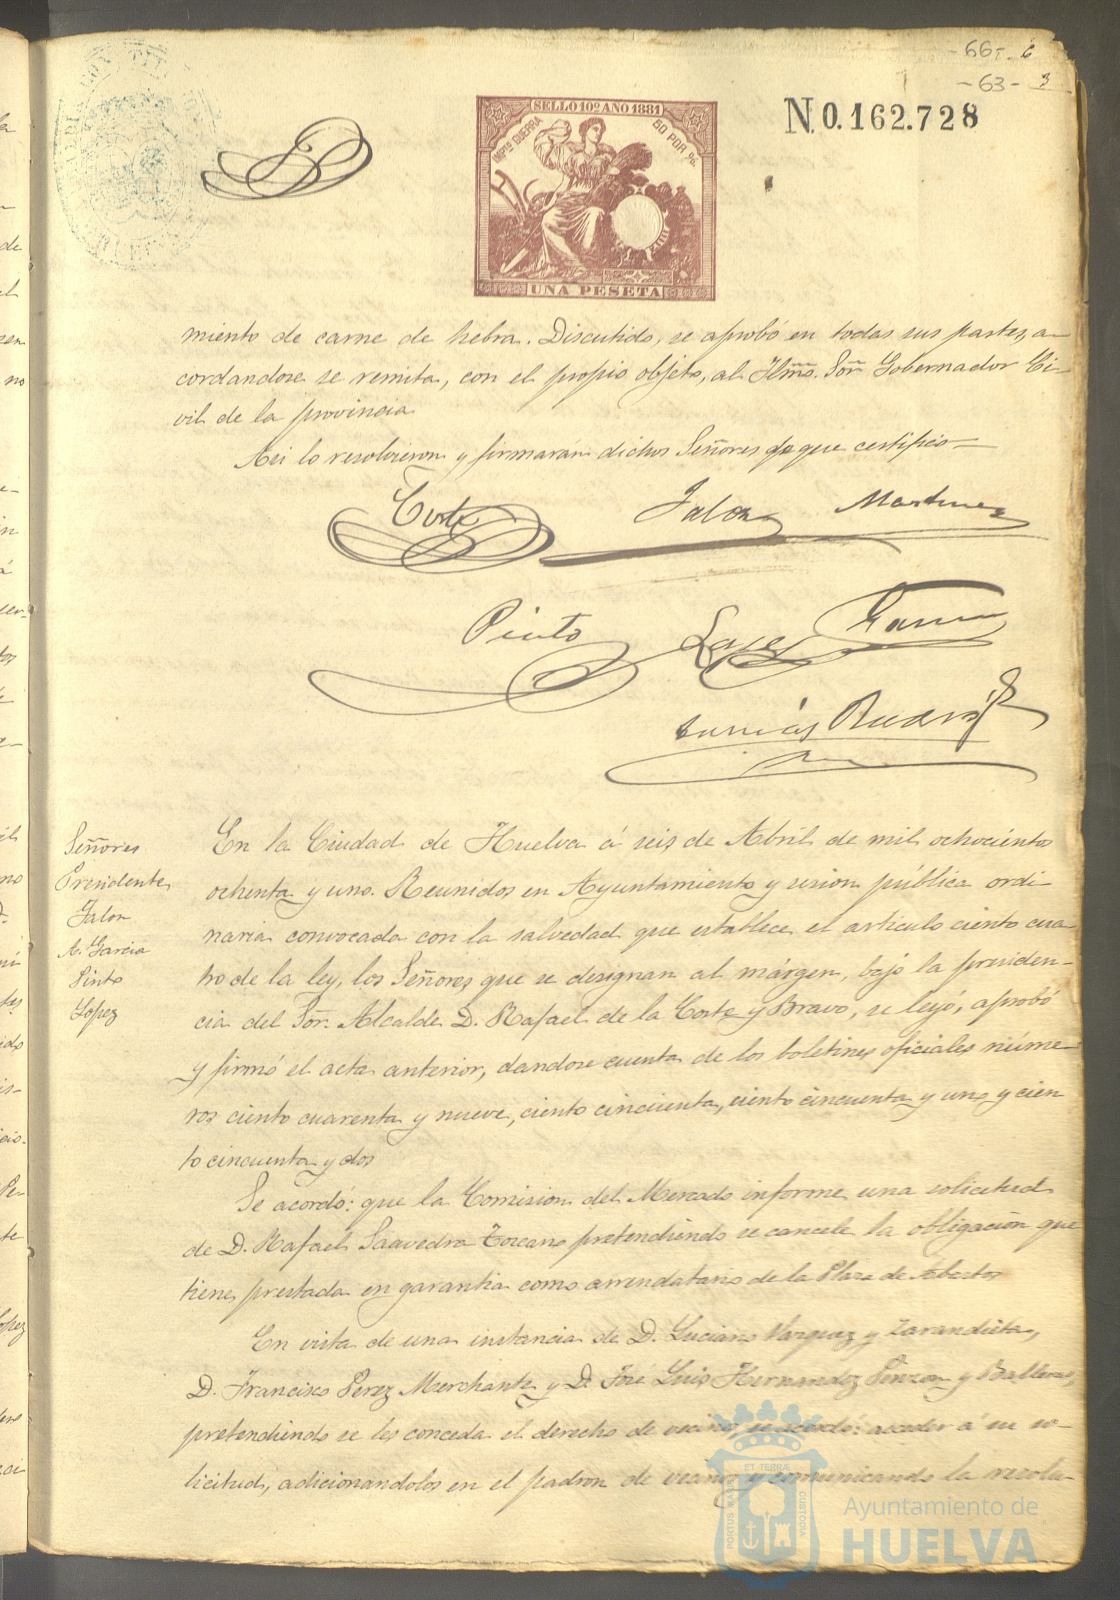 -66- 6
-63- 3
SELLO 10º AÑO 1881
IMPTO GUERRA
50 POR %
UNA PESETA
N. 0.162.728
miento de carne de hebra. Discutido, se aprobó en todas sus partes, a-
cordandose se remita, con el propio objeto, al Ilmo. Sor. Gobernador Ci-
vil de la provincia
Asi lo resolvieron y firmarán dichos Señores de que certifico
Corte
Jalon
Martinez
Pinto
Lopez
Garcia
Señores
Presidente
Jalon
A. Garcia
Pinto
Lopez
En la Ciudad de Huelva á seis de Abril de mil ochocientos
ochenta y uno. Reunidos en Ayuntamiento y sesion pública ordi-
naria convocada con la salvedad que establece el articulo ciento cua-
tro de la ley, los Señores que se designan al márgen, bajo la presiden-
cia del Sor. Alcalde D. Rafael de la Corte y Bravo, se leyó, aprobó
y firmó el acta anterior, dandose cuenta de los boletines oficiales núme-
ros ciento cuarenta y nueve, ciento cincuenta, ciento cincuenta y uno y cien
to cincuenta y dos
Se acordó: que la Comision del Mercado informe una solicitud
de D. Rafael Saavedra Toscano pretendiendo se cancele la obligación que
tiene prestada en garantia como arrendatario de la Plaza de Abastos
En vista de una instancia de D. Luciano Vazquez y Zarandieta,
D. Francisco Perez Merchante y D. José Luis Hernandez Pinzon y Ballera,
pretendiendo se les conceda el derecho de vecino, se acordó: acceder á su so-
licitud, adicionandolos en el padron de vecinos y comunicando la resolu-
PORTUS MARIS ET TERRÆ CUSTODIA
Ayuntamiento de
HUELVA